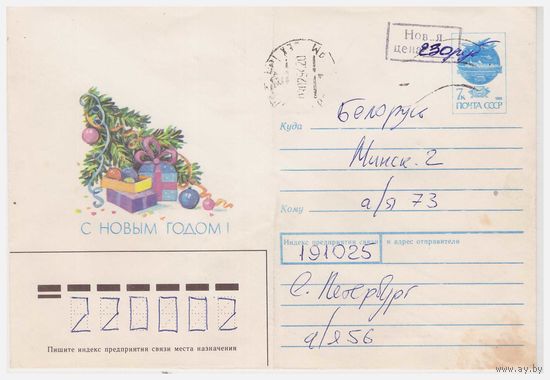 Новая
цена 230 руб
7к
ПОЧТА СССР
Куда
Беларусь
Минск-2
Кому
а/я 73
С НОВЫМ ГОДОМ!
Индекс предприятия связи и адрес отправителя
191025
С. Петербург
а/я 56
220002
Пишите индекс предприятия связи места назначения
www.ay.by